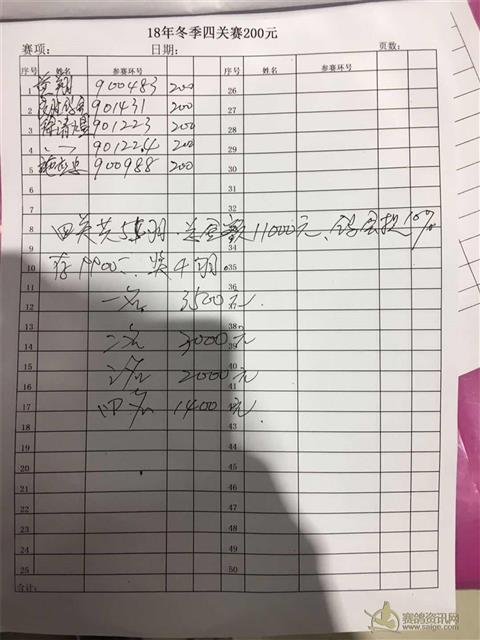 18年冬季四关赛200元
赛项： 日期： 页数：
序号 姓名 参赛环号 序号 姓名 参赛环号
1 黄翔 900483 200 26
2 901431 200 27
3 901223 200 28
4 901224 200 29
5 900988 200 30
6 31
7 32
8 四关共55羽.总金额11000元、鸽会提10%
9 34
10 存9900元、奖4羽. 35
11 36
12 一名 3500元. 37
13 38
14 二名 3000元 39
15 40
16 三名 2000元 41
17 四名 1400元 42
18 43
19 44
20 45
21 46
22 47
23 48
24 49
25 50
合计:
赛鸽资讯网
www.saige.com